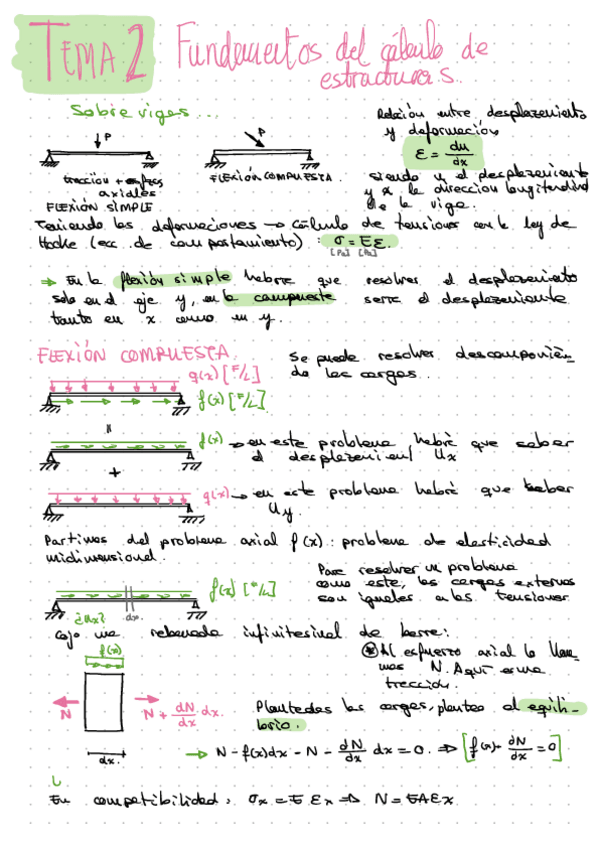 TEMA 2 Fundamentos del cálculo de
estructuras.
Sobre vigas...
Relación entre desplazamiento
y deformación
P
P
ε = du/dx
FLEXIÓN COMPUESTA.
axiales
FLEXIÓN SIMPLE
siendo u el desplazamiento
y x la dirección longitudinal
de la viga.
Teniendo las deformaciones → Cálculo de tensiones con la ley de
Hooke (ec. de comportamiento) : σ = E ε.
[Pa] [Pa]
⇒ En la flexión simple habrá que resolver el desplazamiento
solo en el eje y, en la compuesta será el desplazamiento
tanto en x como en y.
FLEXIÓN COMPUESTA.
Se puede resolver descomponien-
do las cargas.
q(x) [F/L]
f(x) [F/L].
f(x) → en este problema habrá que saber
el desplazamient/ Ux
+
q(x) → en este problema habrá que saber
Uy.
Partimos del problema axial f(x) : problema de elasticidad
unidimensional.
Para resolver un problema
como este, las cargas externas
son iguales a las tensiones
f(x) [F/L]
¿Ux?
dx
Cojo una rebanada infinitesimal de barra:
f(x)
⊛ Al esfuerzo axial lo llama-
mos N. Aquí es una
tracción.
N
N + dN/dx dx.
dx.
Planteadas las cargas, planteo el equili-
brio.
→ N - f(x)dx - N - dN/dx dx = 0. ⇒ [f(x) + dN/dx = 0]
En compatibilidad, σx = E εx ⇒ N = EAεx